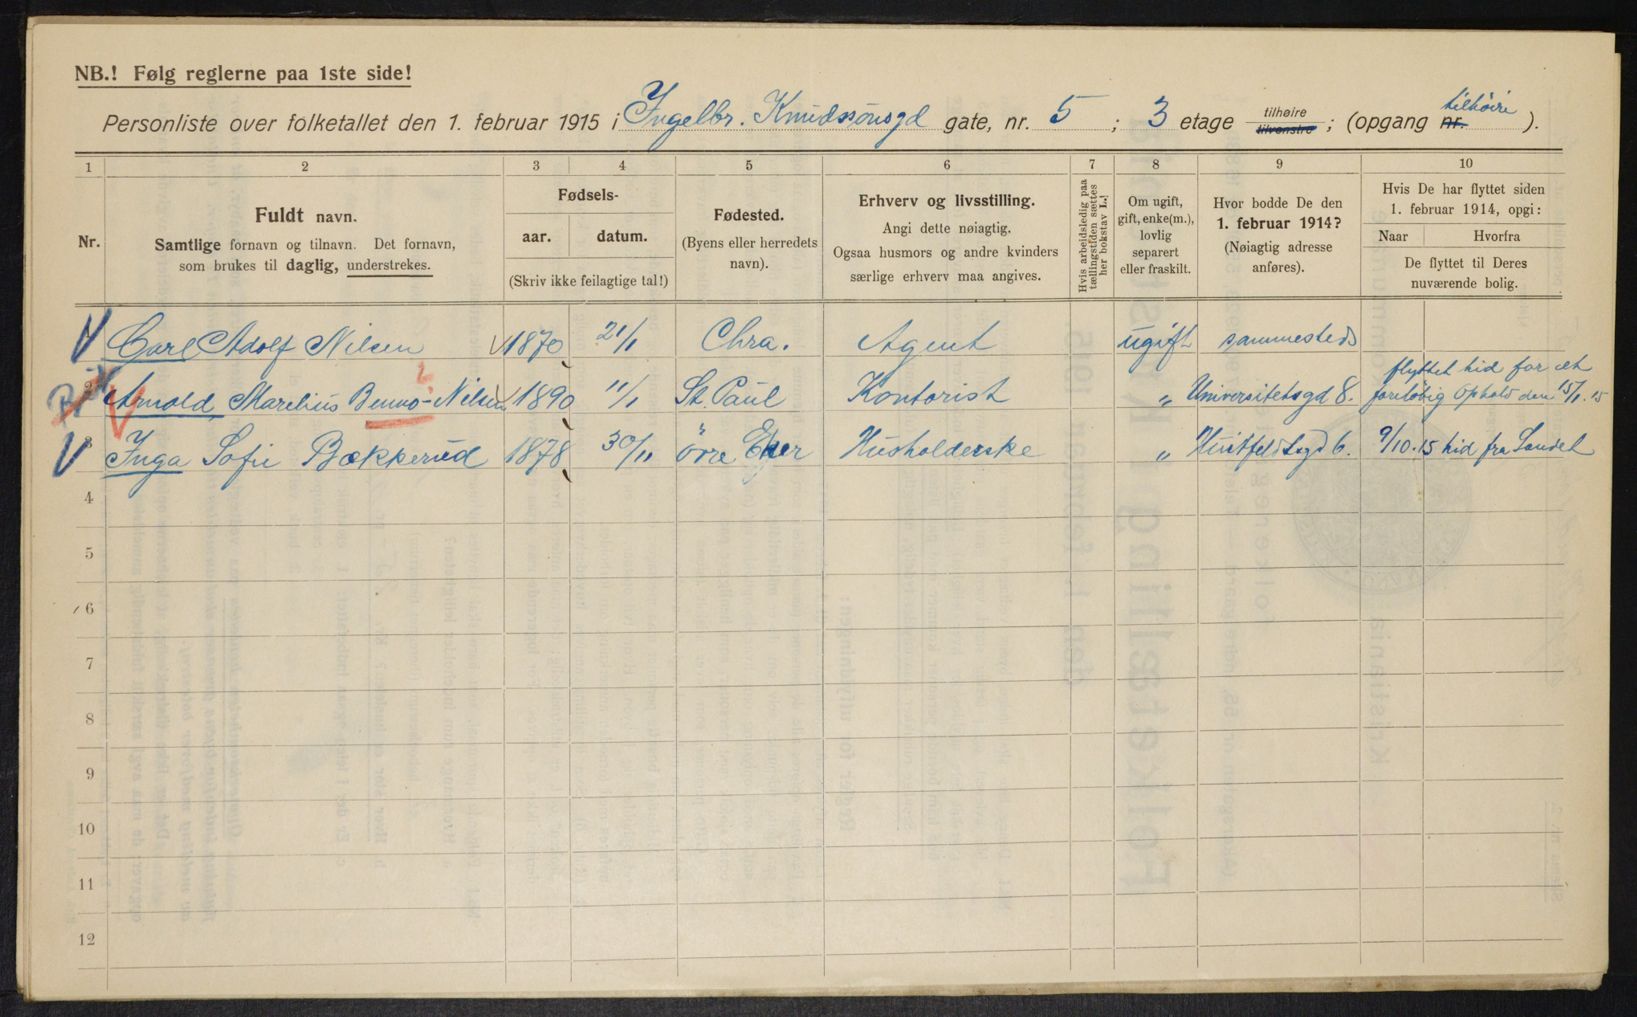 NB.! Følg reglerne paa 1ste side!
Personliste over folketallet den 1. februar 1915 i Ingelbr. Knudssønsgd gate, nr. 5 ; 3 etage tilhøire tilvenstre ; (opgang nr. tilhøire ).
1 2 3 4 5 6 7 8 9 10
Nr.
Fuldt navn.
Samtlige fornavn og tilnavn. Det fornavn,
som brukes til daglig, understrekes.
Fødsels-
aar. datum.
(Skriv ikke feilagtige tal!)
Fødested.
(Byens eller herredets
navn).
Erhverv og livsstilling.
Angi dette nøiagtig.
Ogsaa husmors og andre kvinders
særlige erhverv maa angives.
Hvis arbeidsledig paa
tællingstiden sættes
her bokstav L.!
Om ugift,
gift, enke(m.),
lovlig
separert
eller fraskilt.
Hvor bodde De den
1. februar 1914?
(Nøiagtig adresse
anføres).
Hvis De har flyttet siden
1. februar 1914, opgi:
Naar Hvorfra
De flyttet til Deres
nuværende bolig.
Carl Adolf Nilsen 1870 21/1 Chra. Agent ugift sammesteds
2 Arnold Marelius Benno-Nilsen 1890 11/1 St. Paul Kontorist " Universitetsgd 8. flyttet hid for et
foreløbig Ophold den 15/1. 15
Inga Sofie Bækkerud 1878 30/11 Øvre Eker Husholderske " Huitfeldtsgd 6. 9/10.15 hid fra Landet
4
5
6
7
8
9
10
11
12